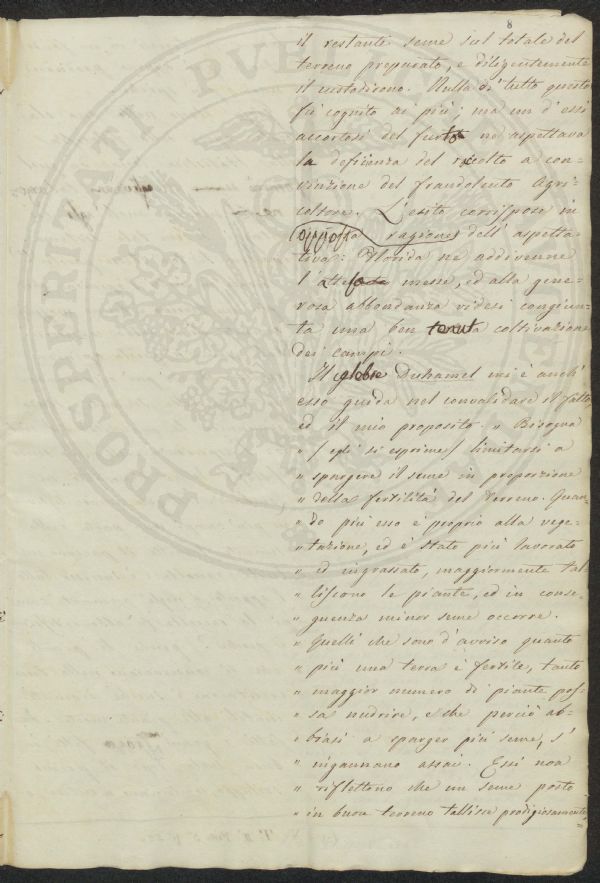 8
il restanti seme sul totale del
terreno preparato, e diligentemente
il custodirono. Nulla di tutto questo
fù cognito ai più; ma un d'essi
accortosi del furto ne aspettava
la deficienza del ricolto a con-
vinzione del fraudolento Agri-
coltore. L'esito corrispose in
opposta ragione dell'aspetta-
tiva: Florida ne addivenne
l'alte messe, ed alla gene-
rosa abbondanza videsi congiun-
ta una ben tenuta coltivazione
dei campi.
Il celebre Duhamel mi è anch'
esso guida nel convalidare il fatto,
ed il mio proposito. " Bisogna
" / egli si esprime / limitarsi a
" spargere il seme in proporzione
" della fertilità del Terreno. Quan-
" do più esso è proprio alla vege-
" tazione, ed è stato più lavorato
" ed ingrassato, maggiormente tal-
" liscono le piante, ed in conse-
" guenza minor seme occorre.
" Quelli che sono d'avviso quanto
" più una terra è fertile, tanto
" maggior numero di piante pos-
" sa nudrire, e che perciò ab-
" biasi a sparger più seme, s'
" ingannano assai. Essi non
" riflettono che un seme posto
" in buon terreno tallisce prodigiosamente,
PROSPERITATI PVBLICAE